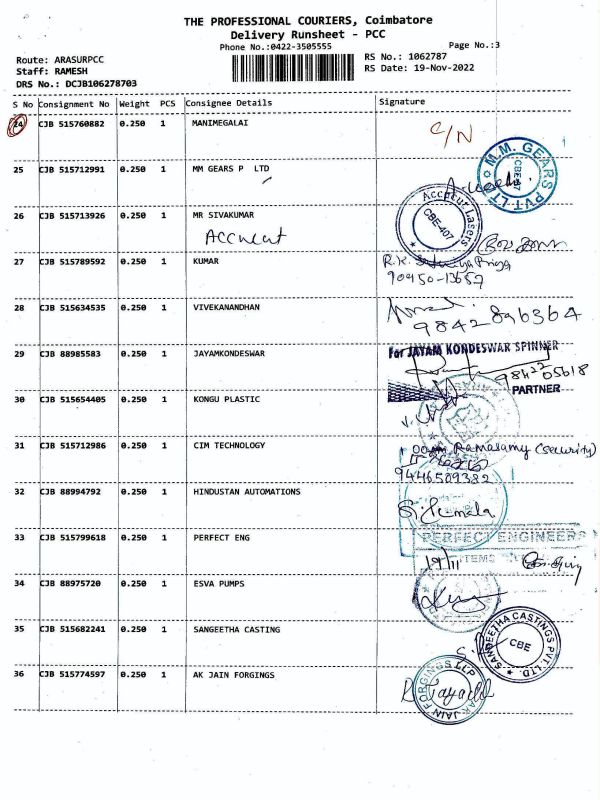 THE PROFESSIONAL COURIERS, Coimbatore
Delivery Runsheet - PCC
Phone No.:0422-3505555
Page No.:3
Route: ARASURPCC
RS No.: 1062787
Staff: RAMESH
RS Date: 19-Nov-2022
DRS No.: DCJB106278703
S No Consignment No Weight PCS Consignee Details Signature
24 CJB 515760882 0.250 1 MANIMEGALAI C/N
25 CJB 515712991 0.250 1 MM GEARS P LTD
M.M. GEARS PVT. LTD CBE-
26 CJB 713926 0.250 1 MR SIVAKUMAR
Accurat
Accurat Lasers CBE-407
27 CJB 515789592 0.250 1 KUMAR R.K. Priya
90950-13657
28 CJB 515634535 0.250 1 VIVEKANANDHAN
9842896364
29 CJB 88985583 0.250 1 JAYAMKONDESWAR For JAYAM KONDESWAR SPINNER
98422 05618
PARTNER
30 CJB 515654405 0.250 1 KONGU PLASTIC
31 CJB 515712986 0.250 1 CIM TECHNOLOGY Ramasamy (security)
9446509382
32 CJB 88994792 0.250 1 HINDUSTAN AUTOMATIONS
33 CJB 515799618 0.250 1 PERFECT ENG PERFECT ENGINEERS
19/11
34 CJB 88975720 0.250 1 ESVA PUMPS
35 CJB 515682241 0.250 1 SANGEETHA CASTING
SANGEETHA CASTINGS PVT. LTD. CBE
36 CJB 515774597 0.250 1 AK JAIN FORGINGS
AK JAIN FORGINGS LLP